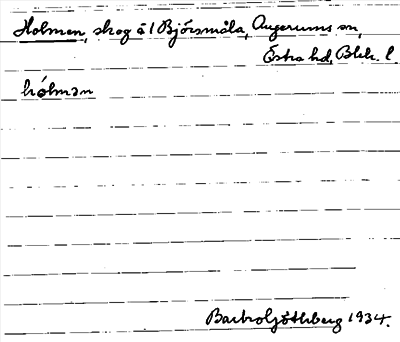 Holmen, skog å 1 Björsmåla, Augerums sn,
Östra hd, Blek. l.
hólmən
Barbro Göthberg 1934.